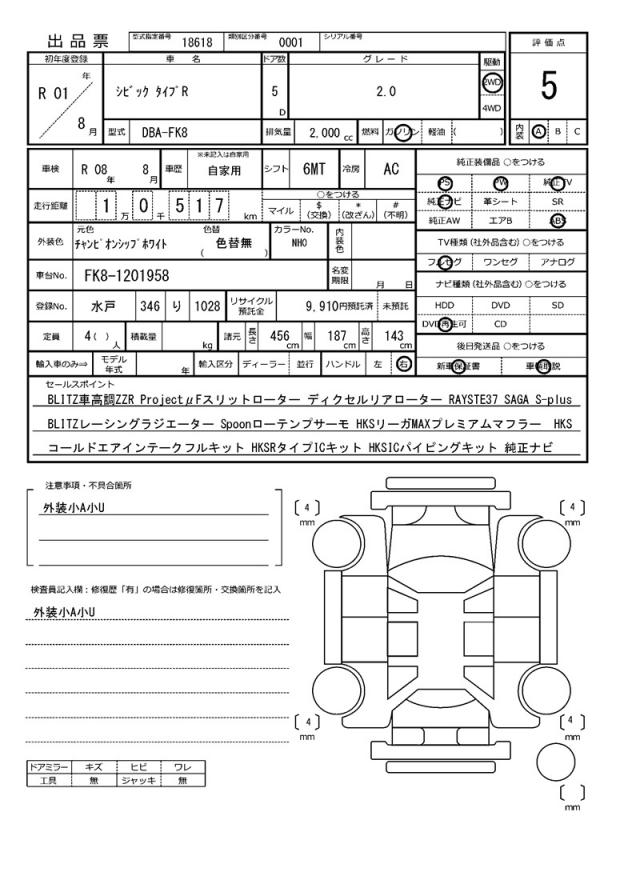 出品票 型式指定番号 18618 類別区分番号 0001 シリアル番号
評価点
5
内装 A B C
初年度登録 車名 ドア数 グレード 駆動
R 01 年 8 月 シビック タイプR 5 D 2.0 2WD 4WD
型式 DBA-FK8 排気量 2,000 cc 燃料 ガソリン 軽油 ( )
車検 R 08 年 8 月 車歴 ※未記入は自家用 自家用 シフト 6MT 冷房 AC
走行距離 1 万 0 千 5 1 7 km
○をつける
マイル $ (交換) * (改ざん) # (不明)
外装色 元色 チャンピオンシップホワイト 色替 ( 色替無 ) カラーNo. NH0 内装色
車台No. FK8-1201958 名変期限 月 日
登録No. 水戸 346 り 1028 リサイクル預託金 9,910円預託済 未預託
定員 4( ) 人 積載量 kg 諸元 長さ 456 cm 幅 187 cm 高さ 143 cm
輸入車のみ⇒ モデル年式 年 輸入区分 ディーラー 並行 ハンドル 左 右
純正装備品 ○をつける
PS PW 純正TV
純正ナビ 革シート SR
純正AW エアB ABS
TV種類 (社外品含む) ○をつける
フルセグ ワンセグ アナログ
ナビ種類 (社外品含む) ○をつける
HDD DVD SD
DVD再生可 CD
後日発送品 ○をつける
新車保証書 車輌取説
セールスポイント
BLITZ車高調ZZR ProjectμFスリットローター ディクセルリアローター RAYSTE37 SAGA S-plus
BLITZレーシングラジエーター Spoonローテンプサーモ HKSリーガMAXプレミアムマフラー HKS
コールドエアインテークフルキット HKSRタイプICキット HKSICパイピングキット 純正ナビ
注意事項・不具合箇所
外装小A小U
検査員記入欄：修復歴「有」の場合は修復箇所・交換箇所を記入
外装小A小U
ドアミラー キズ ヒビ ワレ
工具 無 ジャッキ 無
[ 4 ] mm
[ 4 ] mm
[ 4 ] mm
[ 4 ] mm
[ ] mm